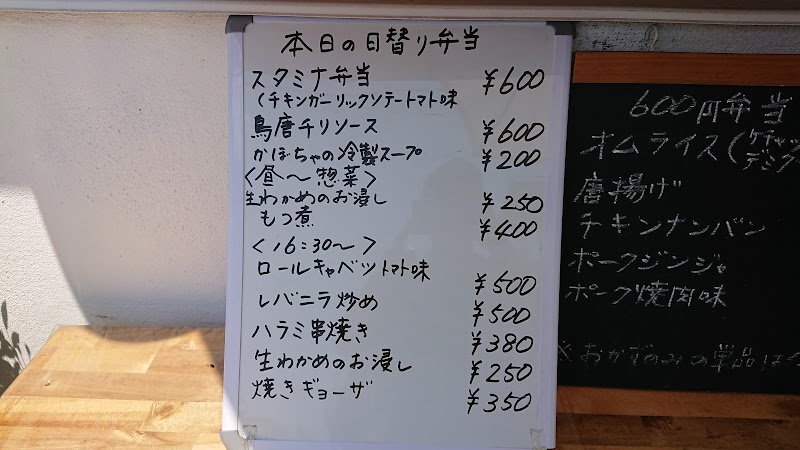 本日の日替り弁当
スタミナ弁当 ¥600
(チキンガーリックソテートマト味
鳥唐チリソース ¥600
かぼちゃの冷製スープ ¥200
<昼〜惣菜>
生わかめのお浸し ¥250
もつ煮 ¥400
<16:30〜>
ロールキャベツトマト味 ¥500
レバニラ炒め ¥500
ハラミ串焼き ¥380
生わかめのお浸し ¥250
焼きギョーザ ¥350
600円弁当
オムライス(ケチャッ
デミグ
唐揚げ
チキンナンバン
ポークジンジャ
ポーク焼肉味
※おかずのみの単品は